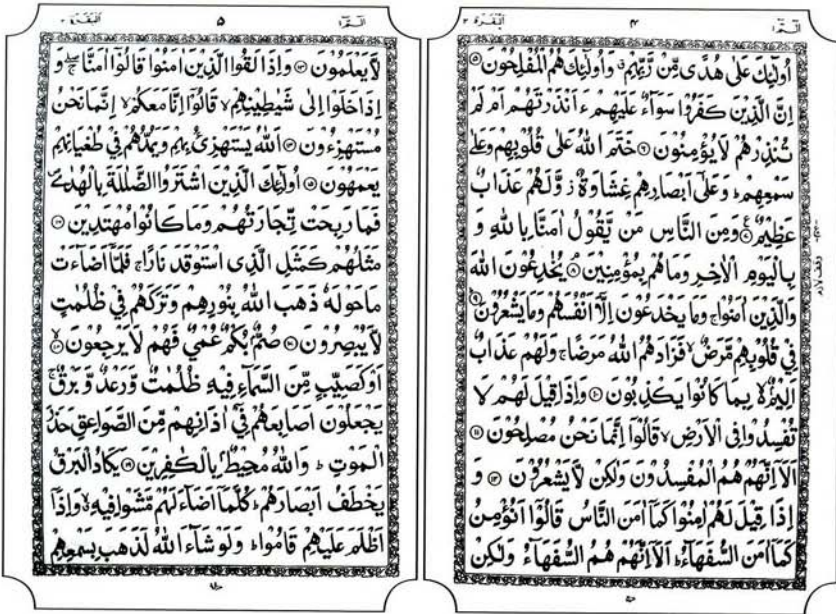 الٓمّٓ ١
٤
البقرة ٢
اُولٰٓئِكَ عَلٰى هُدًى مِّنْ رَّبِّهِمْ ۗ وَاُولٰٓئِكَ هُمُ الْمُفْلِحُوْنَ ۝٥
اِنَّ الَّذِيْنَ كَفَرُوْا سَوَآءٌ عَلَيْهِمْ ءَاَنْذَرْتَهُمْ اَمْ لَمْ
تُنْذِرْهُمْ لَا يُؤْمِنُوْنَ ۝٦ خَتَمَ اللّٰهُ عَلٰى قُلُوْبِهِمْ وَعَلٰى
سَمْعِهِمْ ؕ وَعَلٰٓى اَبْصَارِهِمْ غِشَاوَةٌ ز وَّلَهُمْ عَذَابٌ
عَظِيْمٌ ۝٧ وَمِنَ النَّاسِ مَنْ يَّقُوْلُ اٰمَنَّا بِاللّٰهِ وَ
بِالْيَوْمِ الْاٰخِرِ وَمَا هُمْ بِمُؤْمِنِيْنَ ۝٨ يُخٰدِعُوْنَ اللّٰهَ
وَالَّذِيْنَ اٰمَنُوْا ۚ وَمَا يَخْدَعُوْنَ اِلَّآ اَنْفُسَهُمْ وَمَا يَشْعُرُوْنَ ۝٩
فِيْ قُلُوْبِهِمْ مَّرَضٌ ۙ فَزَادَهُمُ اللّٰهُ مَرَضًا ۚ وَلَهُمْ عَذَابٌ
اَلِيْمٌ ۙ بِمَا كَانُوْا يَكْذِبُوْنَ ۝١٠ وَاِذَا قِيْلَ لَهُمْ لَا
تُفْسِدُوْا فِى الْاَرْضِ ۙ قَالُوْٓا اِنَّمَا نَحْنُ مُصْلِحُوْنَ ۝١١
اَلَآ اِنَّهُمْ هُمُ الْمُفْسِدُوْنَ وَلٰكِنْ لَّا يَشْعُرُوْنَ ۝١٢ وَ
اِذَا قِيْلَ لَهُمْ اٰمِنُوْا كَمَآ اٰمَنَ النَّاسُ قَالُوْٓا اَنُؤْمِنُ
كَمَآ اٰمَنَ السُّفَهَآءُ ؕ اَلَآ اِنَّهُمْ هُمُ السُّفَهَآءُ وَلٰكِنْ
وقف لازم
الٓمّٓ ١
٥
البقرة ٢
لَّا يَعْلَمُوْنَ ۝١٣ وَاِذَا لَقُوا الَّذِيْنَ اٰمَنُوْا قَالُوْٓا اٰمَنَّا ۖۚ وَ
اِذَا خَلَوْا اِلٰى شَيٰطِيْنِهِمْ ۙ قَالُوْٓا اِنَّا مَعَكُمْ ۙ اِنَّمَا نَحْنُ
مُسْتَهْزِءُوْنَ ۝١٤ اَللّٰهُ يَسْتَهْزِئُ بِهِمْ وَيَمُدُّهُمْ فِيْ طُغْيَانِهِمْ
يَعْمَهُوْنَ ۝١٥ اُولٰٓئِكَ الَّذِيْنَ اشْتَرَوُا الضَّلٰلَةَ بِالْهُدٰى ۪
فَمَا رَبِحَتْ تِّجَارَتُهُمْ وَمَا كَانُوْا مُهْتَدِيْنَ ۝١٦
مَثَلُهُمْ كَمَثَلِ الَّذِى اسْتَوْقَدَ نَارًا ۚ فَلَمَّآ اَضَآءَتْ
مَا حَوْلَهٗ ذَهَبَ اللّٰهُ بِنُوْرِهِمْ وَتَرَكَهُمْ فِيْ ظُلُمٰتٍ
لَّا يُبْصِرُوْنَ ۝١٧ صُمٌّۢ بُكْمٌ عُمْيٌ فَهُمْ لَا يَرْجِعُوْنَ ۝١٨ۙ
اَوْ كَصَيِّبٍ مِّنَ السَّمَآءِ فِيْهِ ظُلُمٰتٌ وَّرَعْدٌ وَّبَرْقٌ ۚ
يَجْعَلُوْنَ اَصَابِعَهُمْ فِيْٓ اٰذَانِهِمْ مِّنَ الصَّوَاعِقِ حَذَرَ
الْمَوْتِ ؕ وَاللّٰهُ مُحِيْطٌۢ بِالْكٰفِرِيْنَ ۝١٩ يَكَادُ الْبَرْقُ
يَخْطَفُ اَبْصَارَهُمْ ؕ كُلَّمَآ اَضَآءَ لَهُمْ مَّشَوْا فِيْهِ ۙ وَاِذَآ
اَظْلَمَ عَلَيْهِمْ قَامُوْا ؕ وَلَوْ شَآءَ اللّٰهُ لَذَهَبَ بِسَمْعِهِمْ